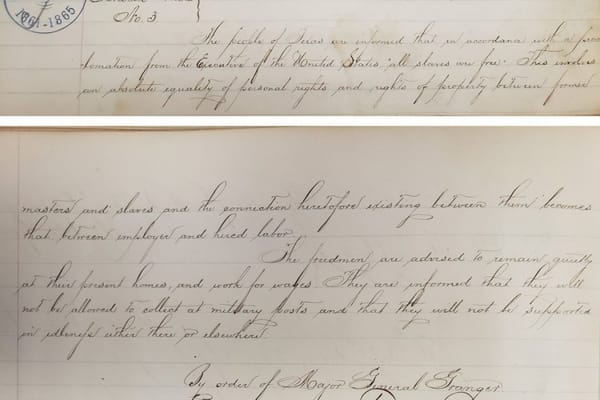 1861-1865
No. 3
The people of Texas are informed that in accordance with a proc
lamation from the Executive of the United States, "all slaves are free." This involves
an absolute equality of personal rights and rights of property between former
masters and slaves and the connection heretofore existing between them becomes
that between employer and hired labor.
The freedmen are advised to remain quietly
at their present homes, and work for wages. They are informed that they will
not be allowed to collect at military posts and that they will not be supported
in idleness either there or elsewhere.
By order of Major General Granger